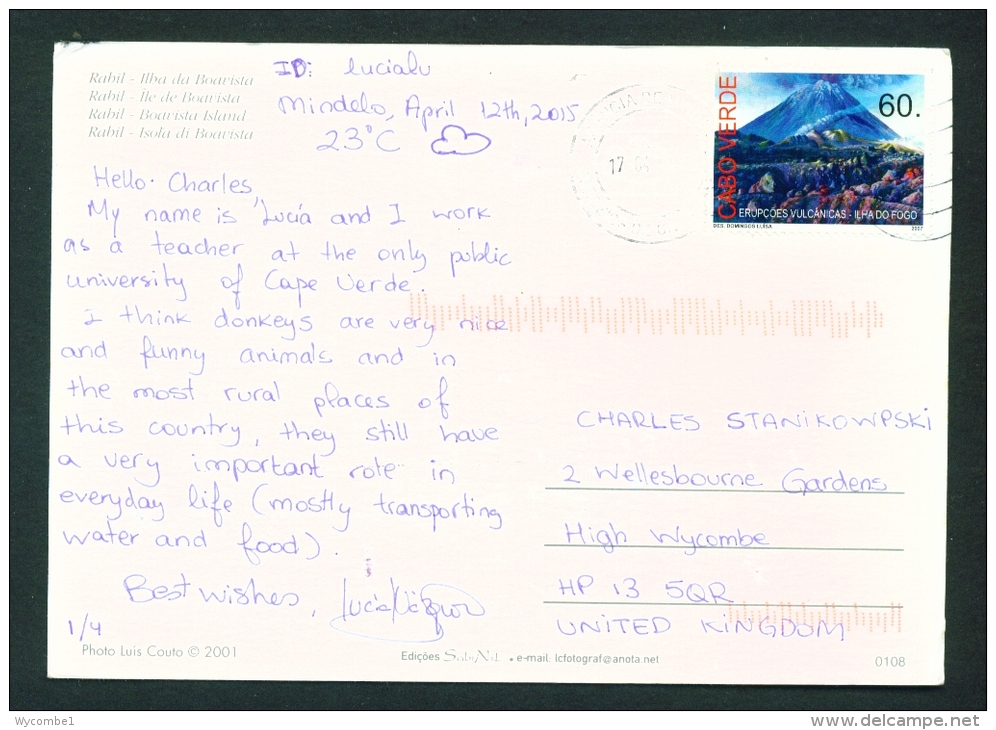 Rabil - Ilha da Boavista
Rabil - Île de Boavista
Rabil - Boavista Island
Rabil - Isola di Boavista
ID: lucialu
Mindelo, April 12th, 2015
23°C
Hello Charles,
My name is Lucía and I work
as a teacher at the only public
university of Cape Verde.
I think donkeys are very nice
and funny animals and in
the most rural places of
this country, they still have
a very important role in
everyday life (mostly transporting
water and food).
Best wishes,
1/4
CABO VERDE
60.
ERUPÇÕES VULCÂNICAS - ILHA DO FOGO
DES. DOMINGOS LUISA
2007
17
CHARLES STANIKOWPSKI
2 Wellesbourne Gardens
High Wycombe
HP 13 5QR
UNITED KINGDOM
Photo Luis Couto © 2001
Edições
• e-mail: lcfotograf@anota.net
0108
Wycombe1
www.delcampe.net